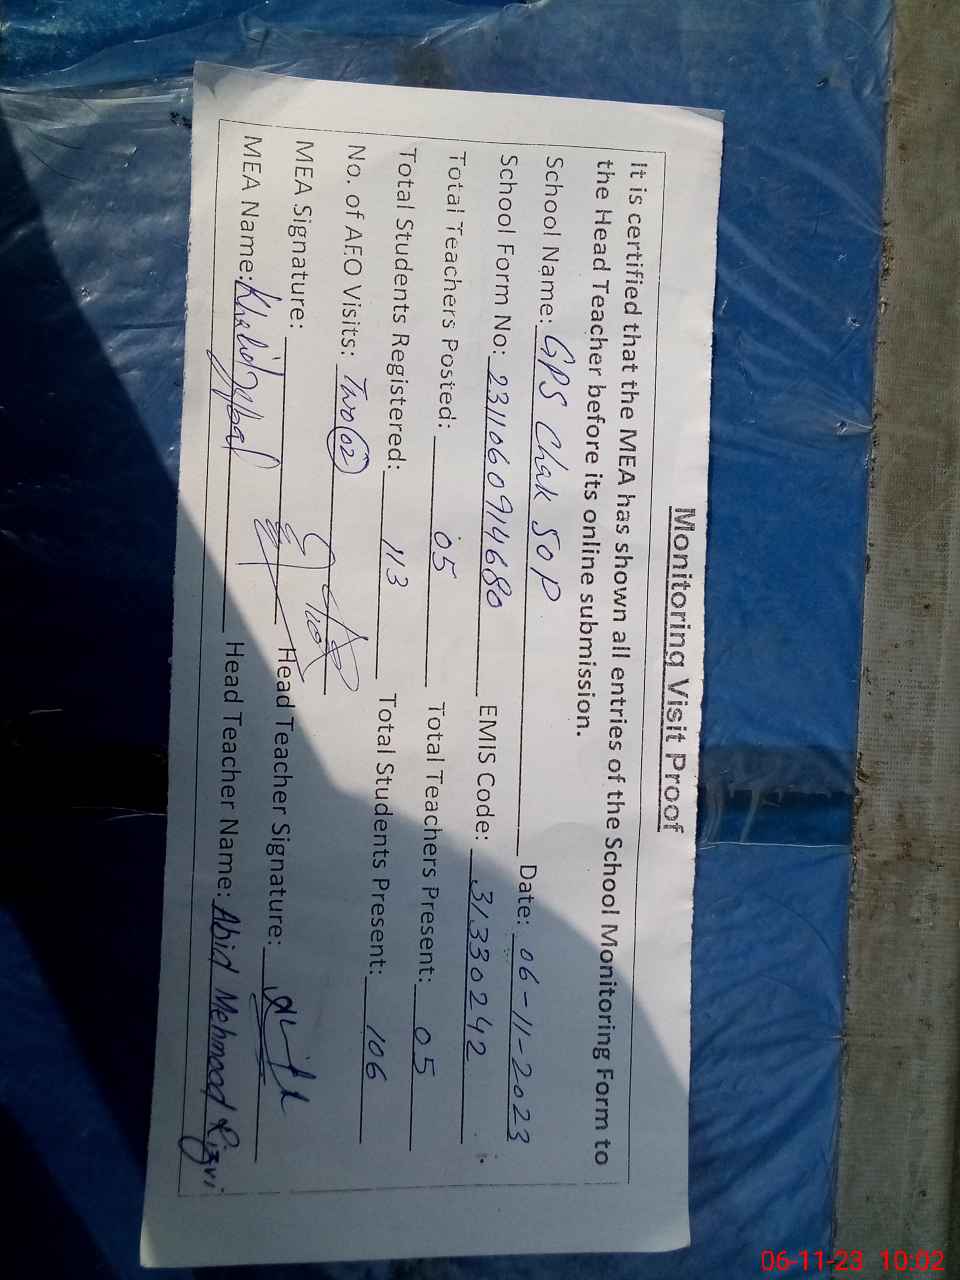 Monitoring Visit Proof
It is certified that the MEA has shown all entries of the School Monitoring Form to
the Head Teacher before its online submission.
School Name: GPS Chak 50P Date: 06-11-2023
School Form No: 2311060914680 EMIS Code: 31330242
Total Teachers Posted: 05 Total Teachers Present: 05
Total Students Registered: 113 Total Students Present: 106
No. of AEO Visits: Two (02)
MEA Signature: Head Teacher Signature:
MEA Name: Khalid Iqbal Head Teacher Name: Abid Mehmood Rizvi
06-11-23 10:02